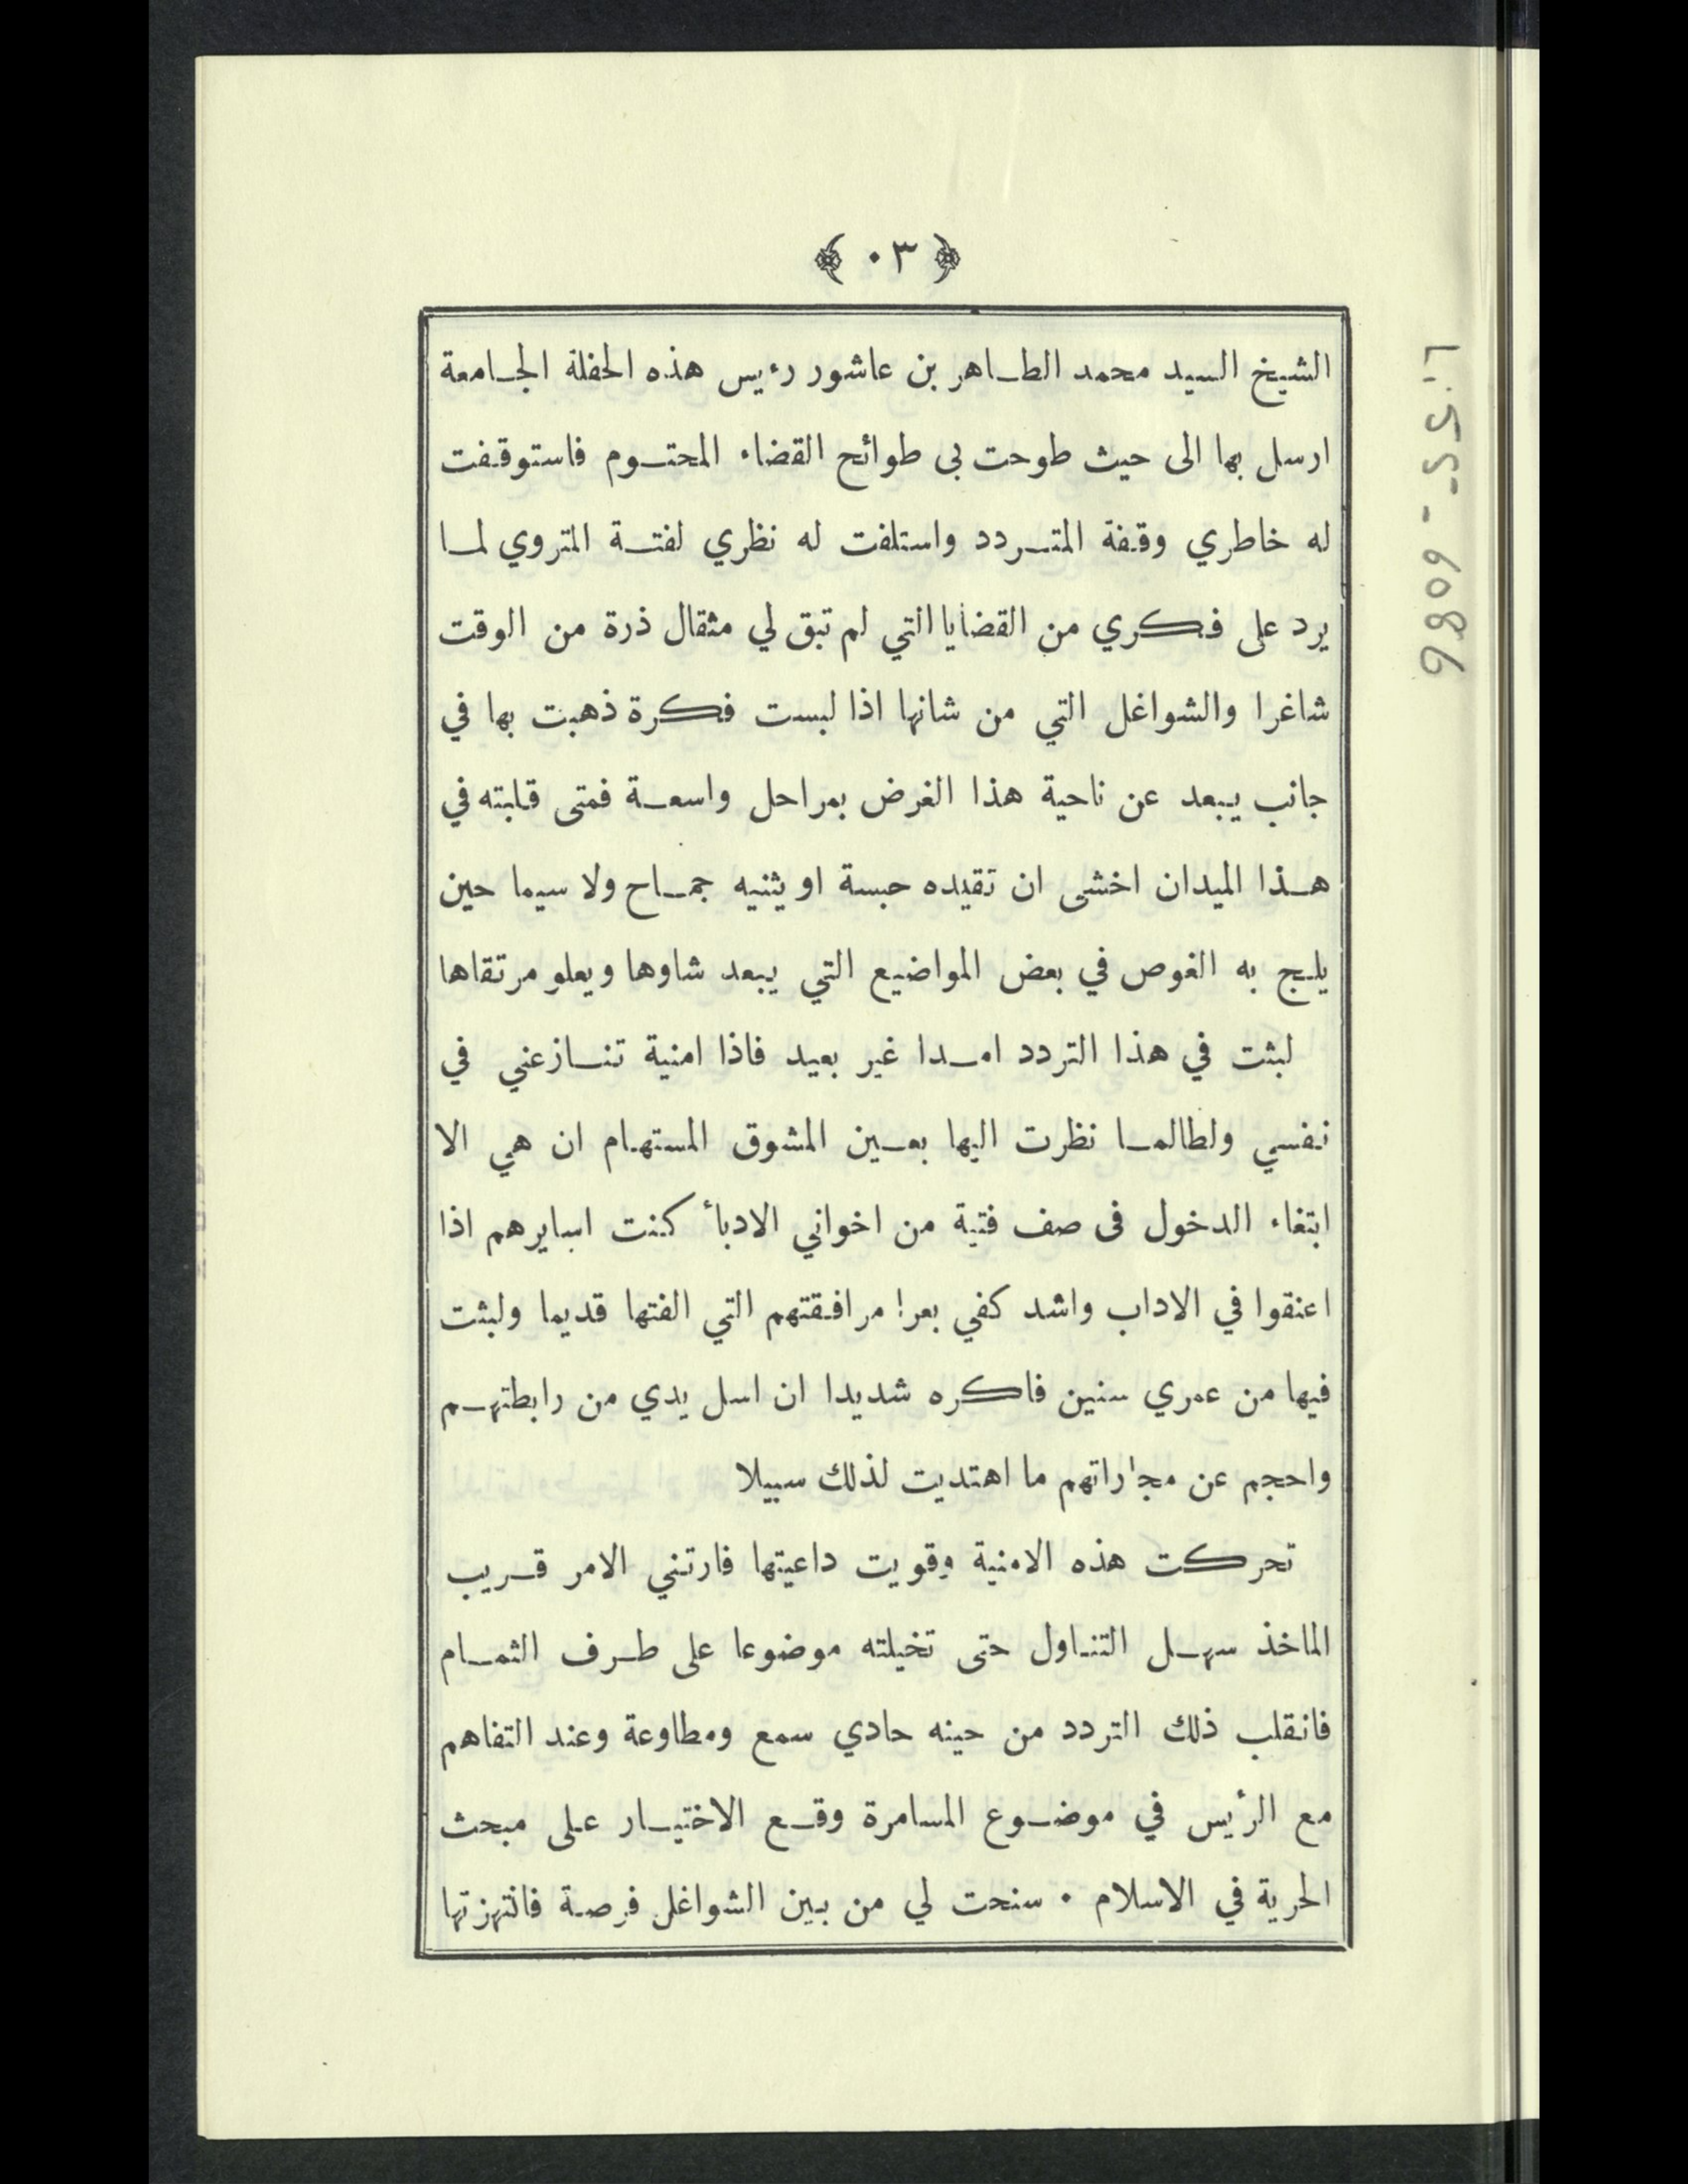 ﴿ ٠٣ ﴾
الشيخ السيد محمد الطاهر بن عاشور رءيس هذه الحفلة الجامعة
ارسل بها الى حيث طوحت بى طوائح القضاء المحتوم فاستوقفت
له خاطري وقفة المتردد واستلفت له نظري لفتة المتروي لما
يرد على فكري من القضايا التي لم تبق لي مثقال ذرة من الوقت
شاغرا والشواغل التي من شانها اذا لبست فكرة ذهبت بها في
جانب يبعد عن ناحية هذا الغرض بمراحل واسعة فمتى قلبته في
هذا الميدان اخشى ان تقيده حبسة او يثنيه جماح ولا سيما حين
يلج به الغوص في بعض المواضيع التي يبعد شاوها ويعلو مرتقاها
لبثت في هذا التردد امدا غير بعيد فاذا امنية تنازعني في
نفسي ولطالما نظرت اليها بعين المشوق المستهام ان هي الا
ابتغاء الدخول فى صف فتية من اخواني الادباأ كنت اسايرهم اذا
اعنقوا في الاداب واشد كفي بعرا مرافقتهم التي الفتها قديما ولبثت
فيها من عمري سنين فاكره شديدا ان اسل يدي من رابطتهم
واحجم عن مجاراتهم ما اهتديت لذلك سبيلا
تحركت هذه الامنية وقويت داعيتها فارتني الامر قريب
الماخذ سهل التناول حتى تخيلته موضوعا على طرف الثمام
فانقلب ذلك التردد من حينه حادي سمع ومطاوعة وعند التفاهم
مع الرأيس في موضوع المسامرة وقع الاختيار على مبحث
الحرية في الاسلام ٠ سنحت لي من بين الشواغل فرصة فانتهزتها